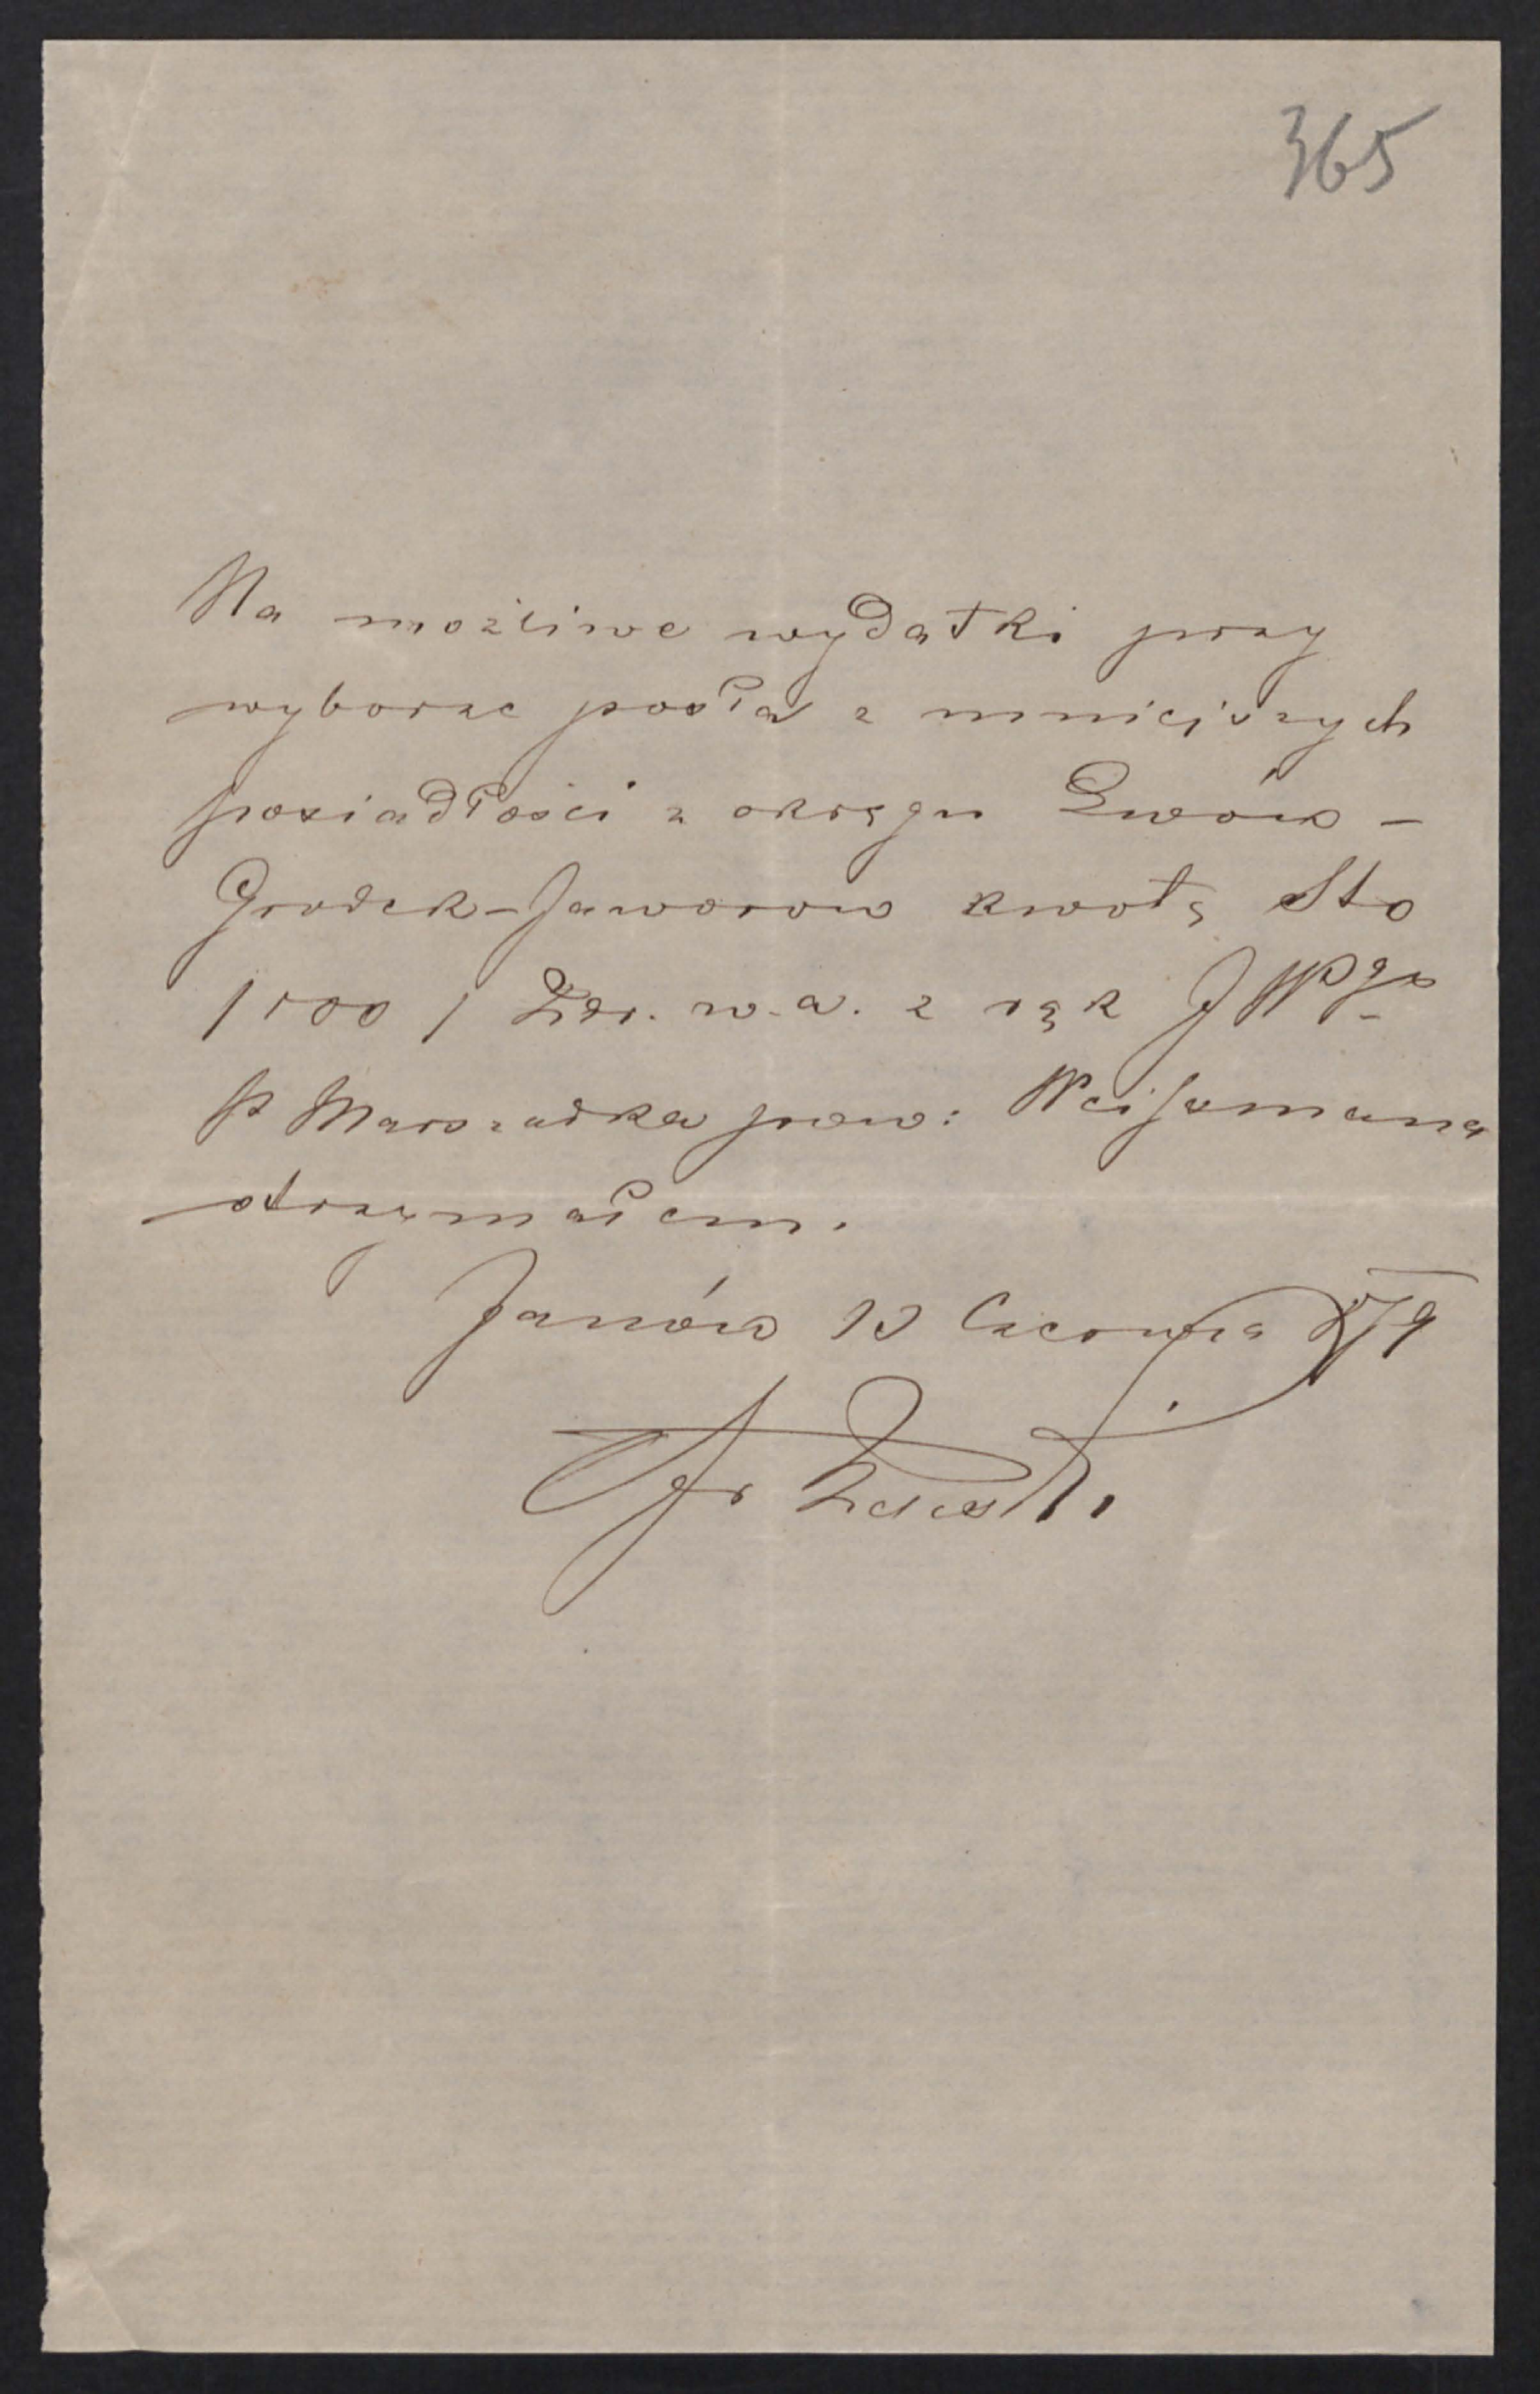 365
Na możliwe wydatki przy
wyborze posła z mniejszych
posiadłości z okręgu Lwów -
Grodek - Jaworow kwotę Sto
/ 100 / Złr. w. a. z rąk JWPgo
P Marszałka pow: Weissmana
otrzymałem.
Janów 13 Czerwca 879